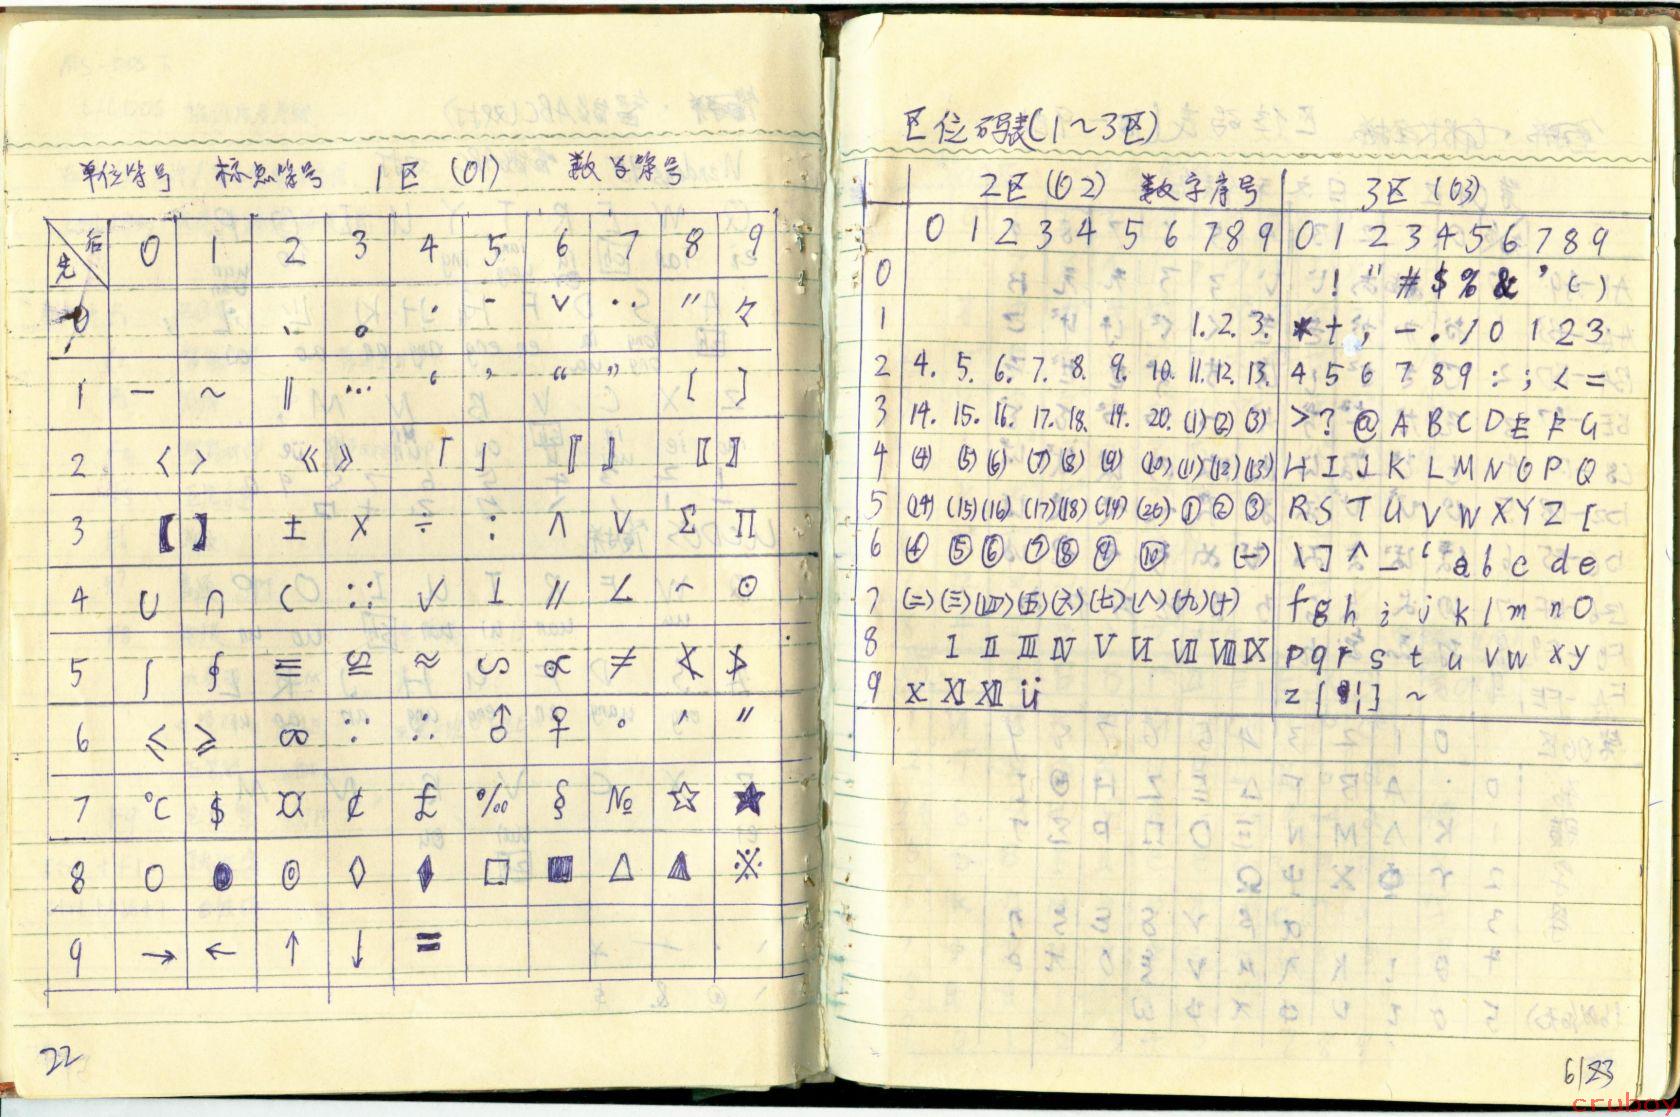 单位符号 标点符号 1区 (01) 数学符号
后
先 0 1 2 3 4 5 6 7 8 9
0 、 。 · ˉ ˇ ¨ 〃 々
1 — ~ ‖ … ‘ ’ “ ” 〔 〕
2 〈 〉 《 》 「 」 『 』 〖 〗
3 【 】 ± × ÷ ∶ ∧ ∨ ∑ ∏
4 ∪ ∩ ∈ ∷ √ ⊥ ∥ ∠ ⌒ ⊙
5 ∫ ∮ ≡ ≌ ≈ ∽ ∝ ≠ ≮ ≯
6 ≤ ≥ ∞ ∵ ∴ ♂ ♀ ° ′ ″
7 ℃ $ ¤ ¢ £ ‰ § № ☆ ★
8 ○ ● ◎ ◇ ◆ □ ■ △ ▲ ※
9 → ← ↑ ↓ 〓
22
区位码表(1~3区)
2区(02) 数字序号 3区(03)
0 1 2 3 4 5 6 7 8 9 0 1 2 3 4 5 6 7 8 9
0 ! " # $ % & ' ( )
1 1. 2. 3. * + , - . / 0 1 2 3
2 4. 5. 6. 7. 8. 9. 10. 11. 12. 13. 4 5 6 7 8 9 : ; < =
3 14. 15. 16. 17. 18. 19. 20. (1) (2) (3) > ? @ A B C D E F G
4 (4) (5) (6) (7) (8) (9) (10) (11) (12) (13) H I J K L M N O P Q
5 (14) (15) (16) (17) (18) (19) (20) ① ② ③ R S T U V W X Y Z [
6 ④ ⑤ ⑥ ⑦ ⑧ ⑨ ⑩ (一) \ ] ^ _ ‘ a b c d e
7 (二) (三) (四) (五) (六) (七) (八) (九) (十) f g h i j k l m n o
8 Ⅰ Ⅱ Ⅲ Ⅳ Ⅴ Ⅵ Ⅶ Ⅷ Ⅸ p q r s t u v w x y
9 Ⅹ Ⅺ Ⅻ ü z { | } ~
6/23
cruboy